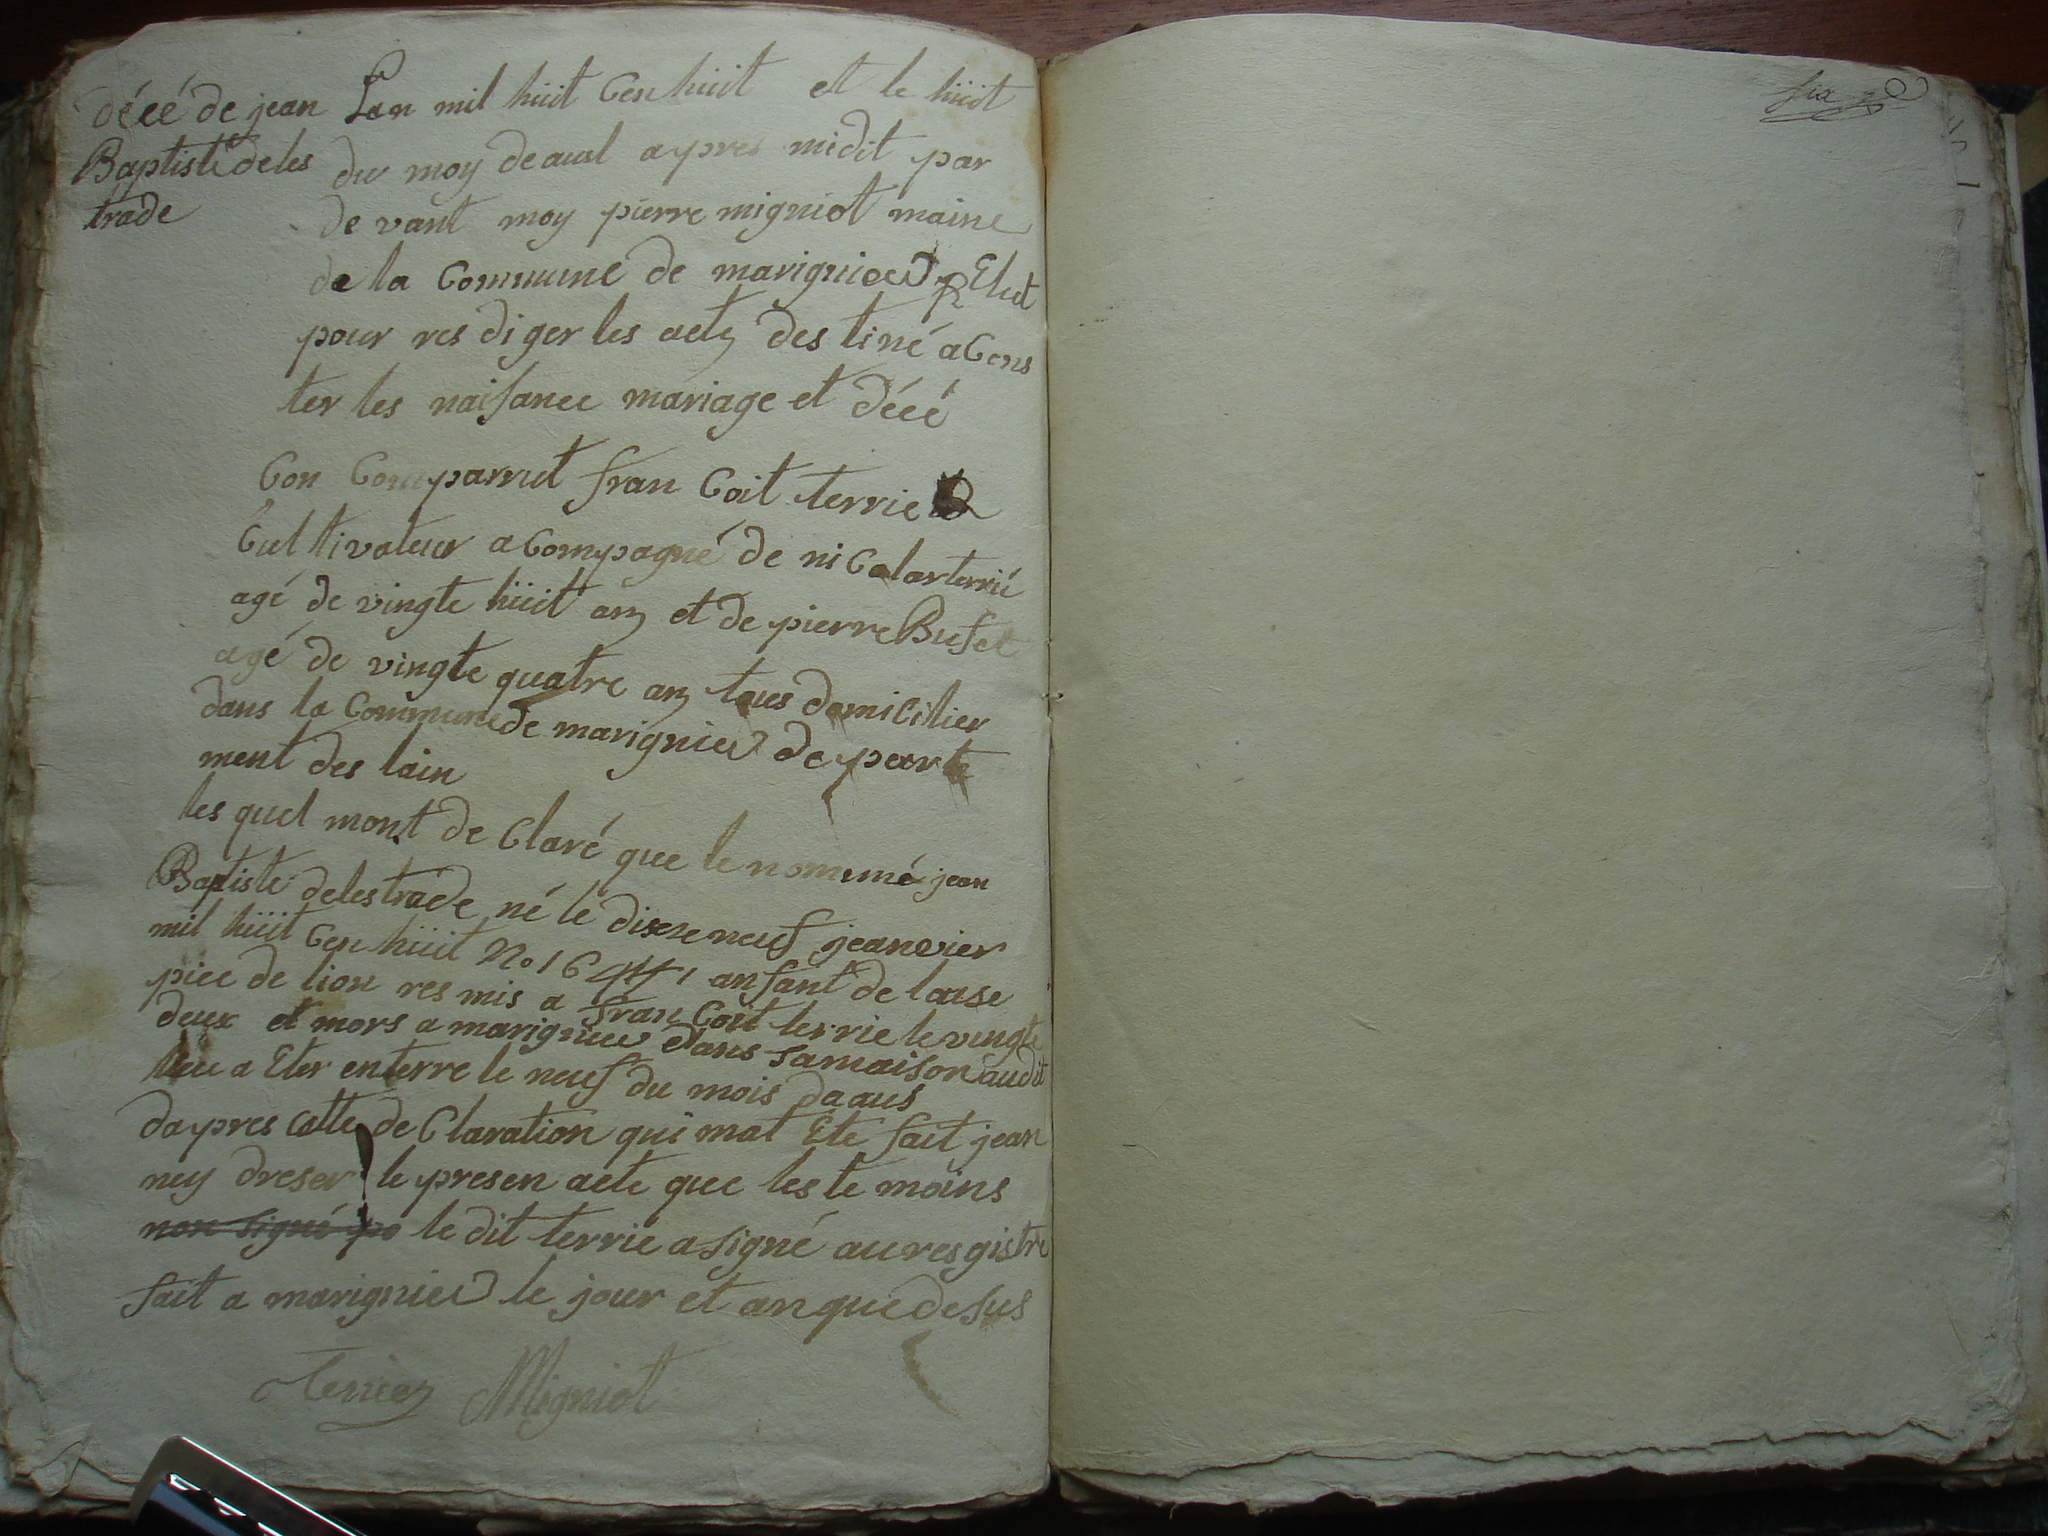 décé de jean
Baptiste deles
trade
Lan mil hüit Cen hüit et le hüit
du moy de aust apres midit par
de vant moy pierre migniot maine
de la Commune de marignieu Elut
pour res diger les acte des tiné a Cons
ter les naisance mariage et décé
Con Comparrut fran Coit terrie
Cul tivateur a Compagné de ni Colas terrié
agé de vingte hüit an et de pierre Bufet
agé de vingte quatre an tous domicilier
dans la Commune de marignieu de parte
ment des lain
les quel mont de Claré que le nommé jean
Baptiste delestrade né le dixe neuf jeanvier
mil hüit Cen hüit No 16441 anfant de lause
pice de lion res mis a fran Coit terrie le vingte
deux et mors a marignieu dans sa maison audit
lieu a Eter enterre le neuf du mois daaus
dapres cette de Claration qui mat Ete fait jean
ney dreser le presen acte que les te moins
non signé le dit terrie a signé au res gistre
fait a marignieu le jour et an que de sus
Terrier Migniot
six